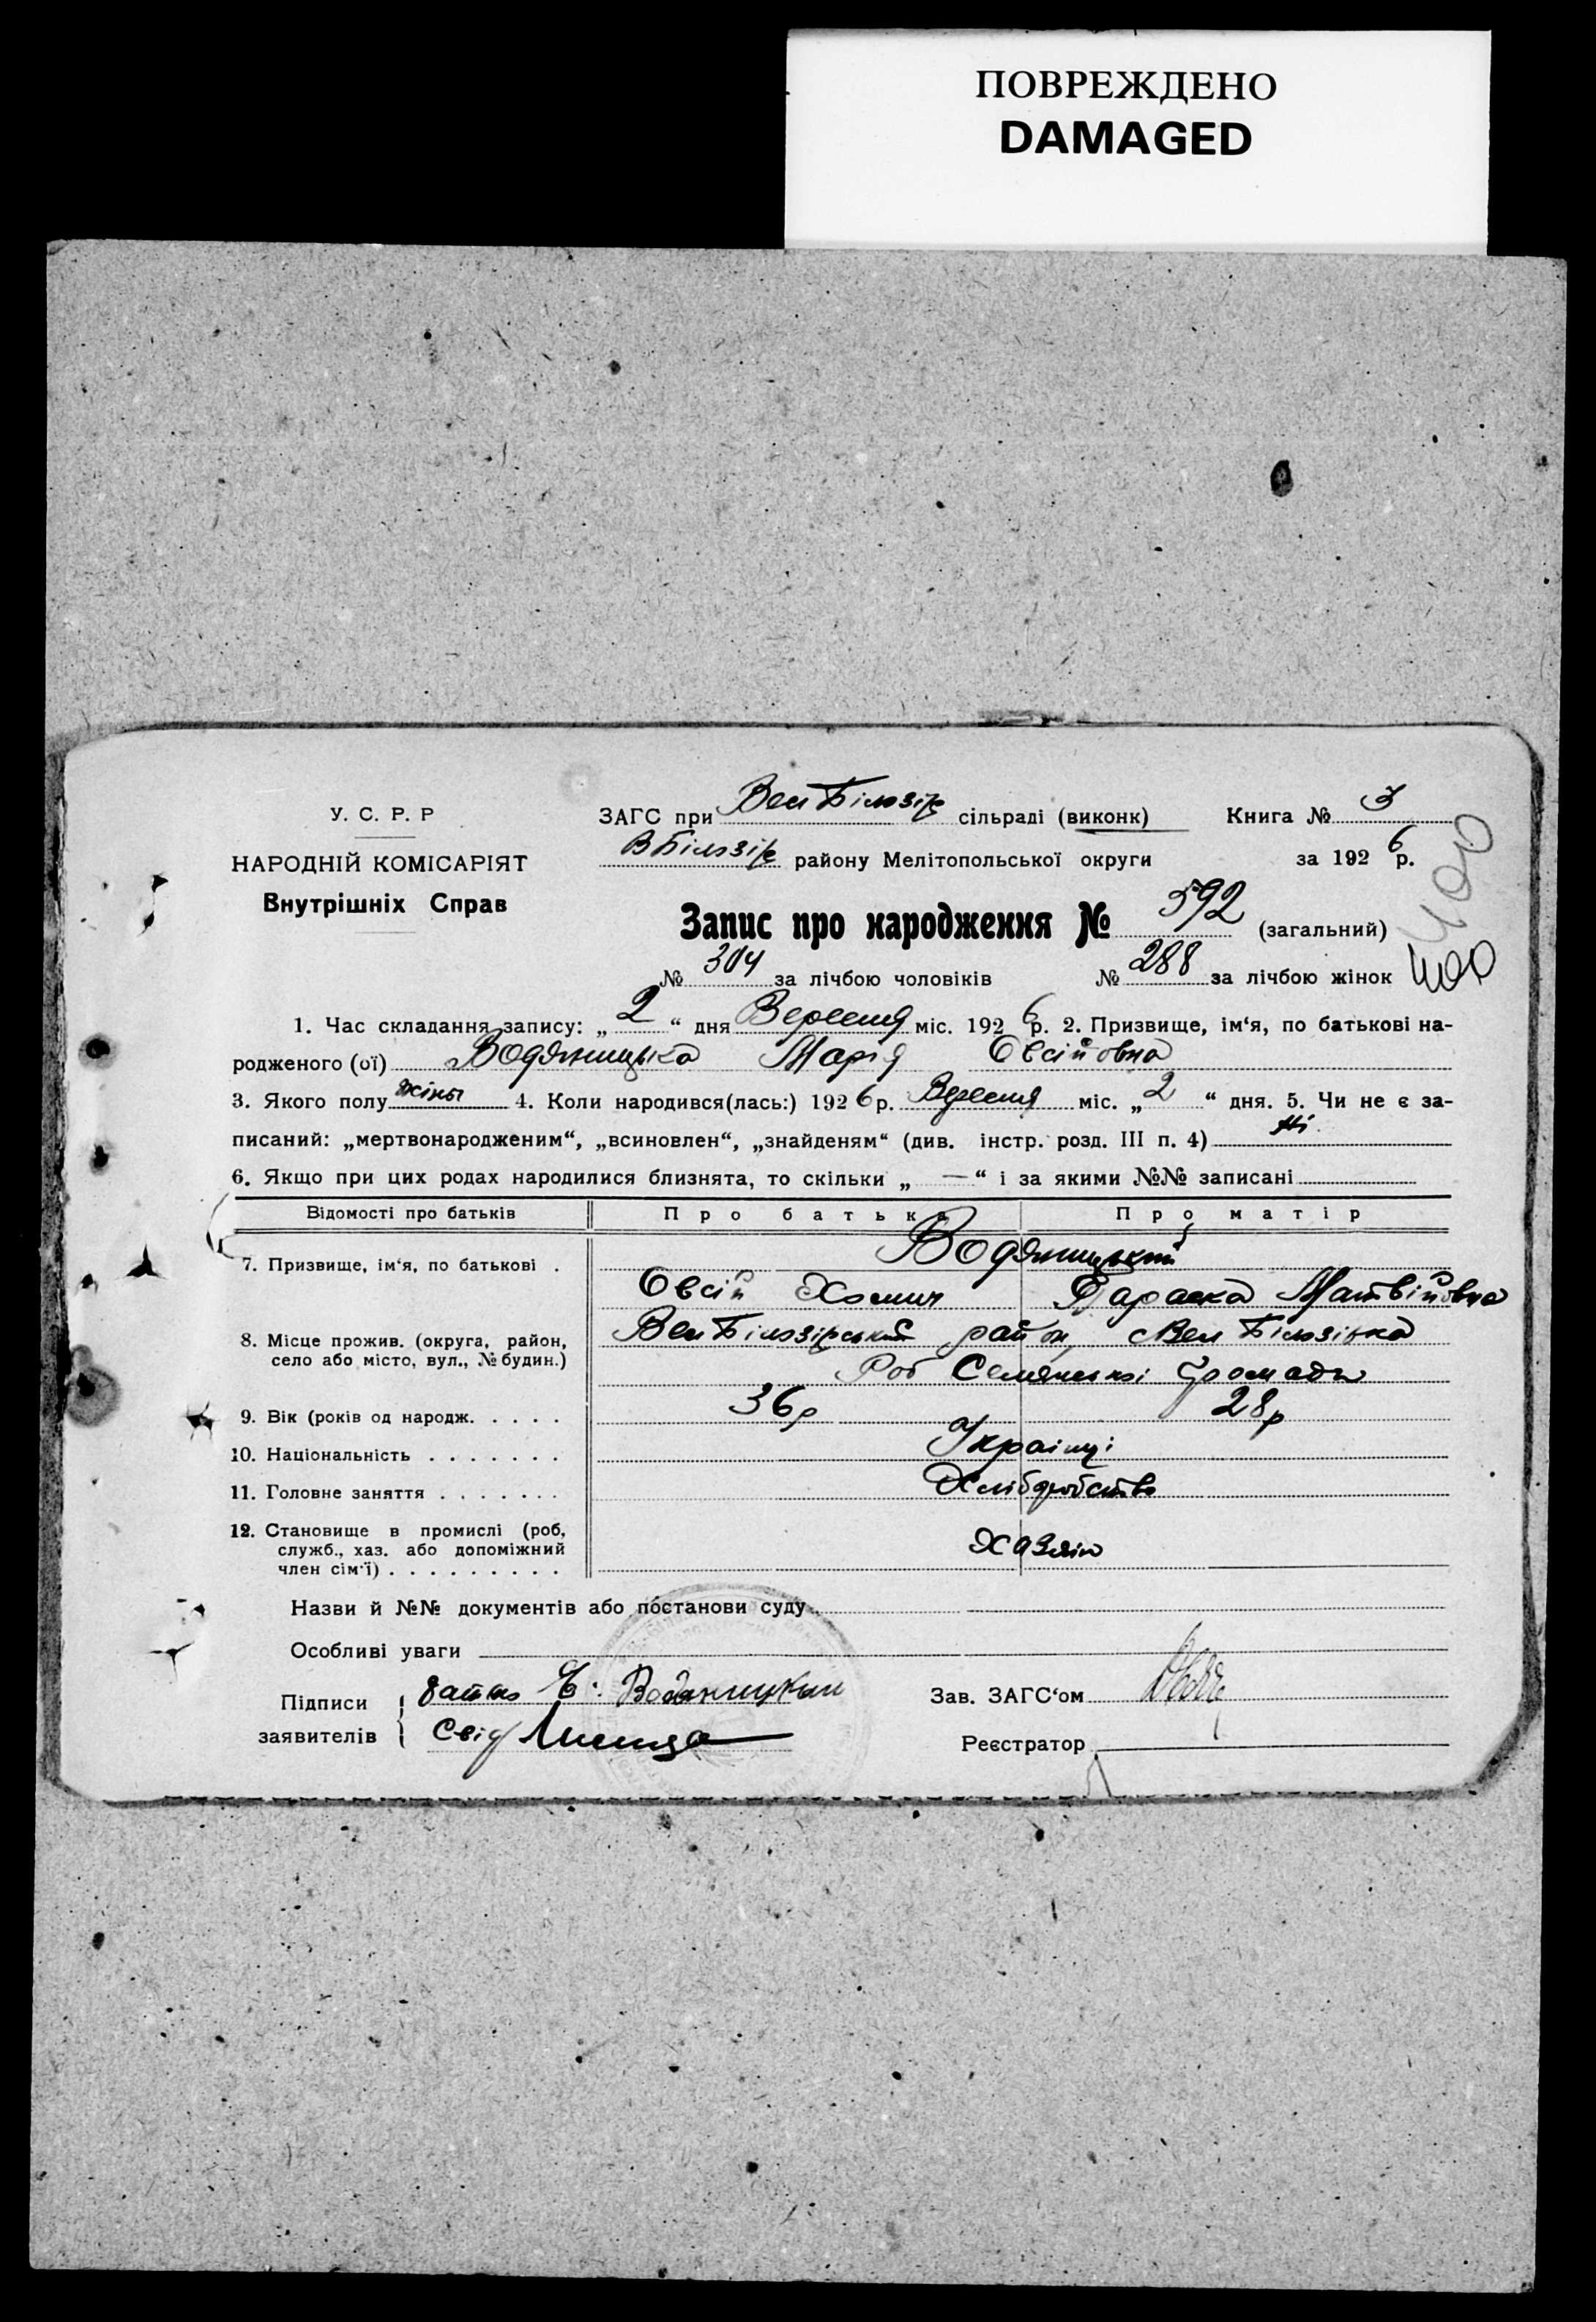 ПОВРЕЖДЕНО
DAMAGED
У. С. Р. Р
НАРОДНІЙ КОМІСАРІЯТ
Внутрішніх Справ
ЗАГС при Вел Білозір сільраді (виконк) Книга № 3
В Білозір району Мелітопольської округи за 1926 р.
Запис про народження № 592 (загальний)
№ 304 за лічбою чоловіків № 288 за лічбою жінок
400
400
1. Час складання запису: „ 2 “ дня Вересня міс. 1926 р. 2. Призвище, ім‘я, по батькові на-
родженого (ої) Водяницька Марія Овсійовна
3. Якого полу жіноч 4. Коли народився(лась:) 1926 р. Вересня міс. „ 2 “ дня. 5. Чи не є за-
писаний: „мертвонародженим“, „всиновлен“, „знайденям“ (див. інстр. розд. III п. 4) Ні
6. Якщо при цих родах народилися близнята, то скільки „ — “ і за якими №№ записані
Відомості про батьків Про батька Про матір
7. Призвище, ім‘я, по батькові . Водяницький
Овсій Хомич Параска Матвійовна
8. Місце прожив. (округа, район, село або місто, вул., № будин.) Вел Білозірський район, с Вел Білозірка
Громади
9. Вік (років од народж. . . . . 36 р 28 р
10. Національність . . . . . . . Українці
11. Головне заняття . . . . . . . Хліборобство
12. Становище в промислі (роб, служб., хаз. або допоміжний член сім‘ї) . . . . . . . . . Хазяін
Назви й №№ документів або постанови суду
Особливі уваги
Підписи заявителів { батько Є. Водяницкий
Свід
Зав. ЗАГС‘ом
Реєстратор